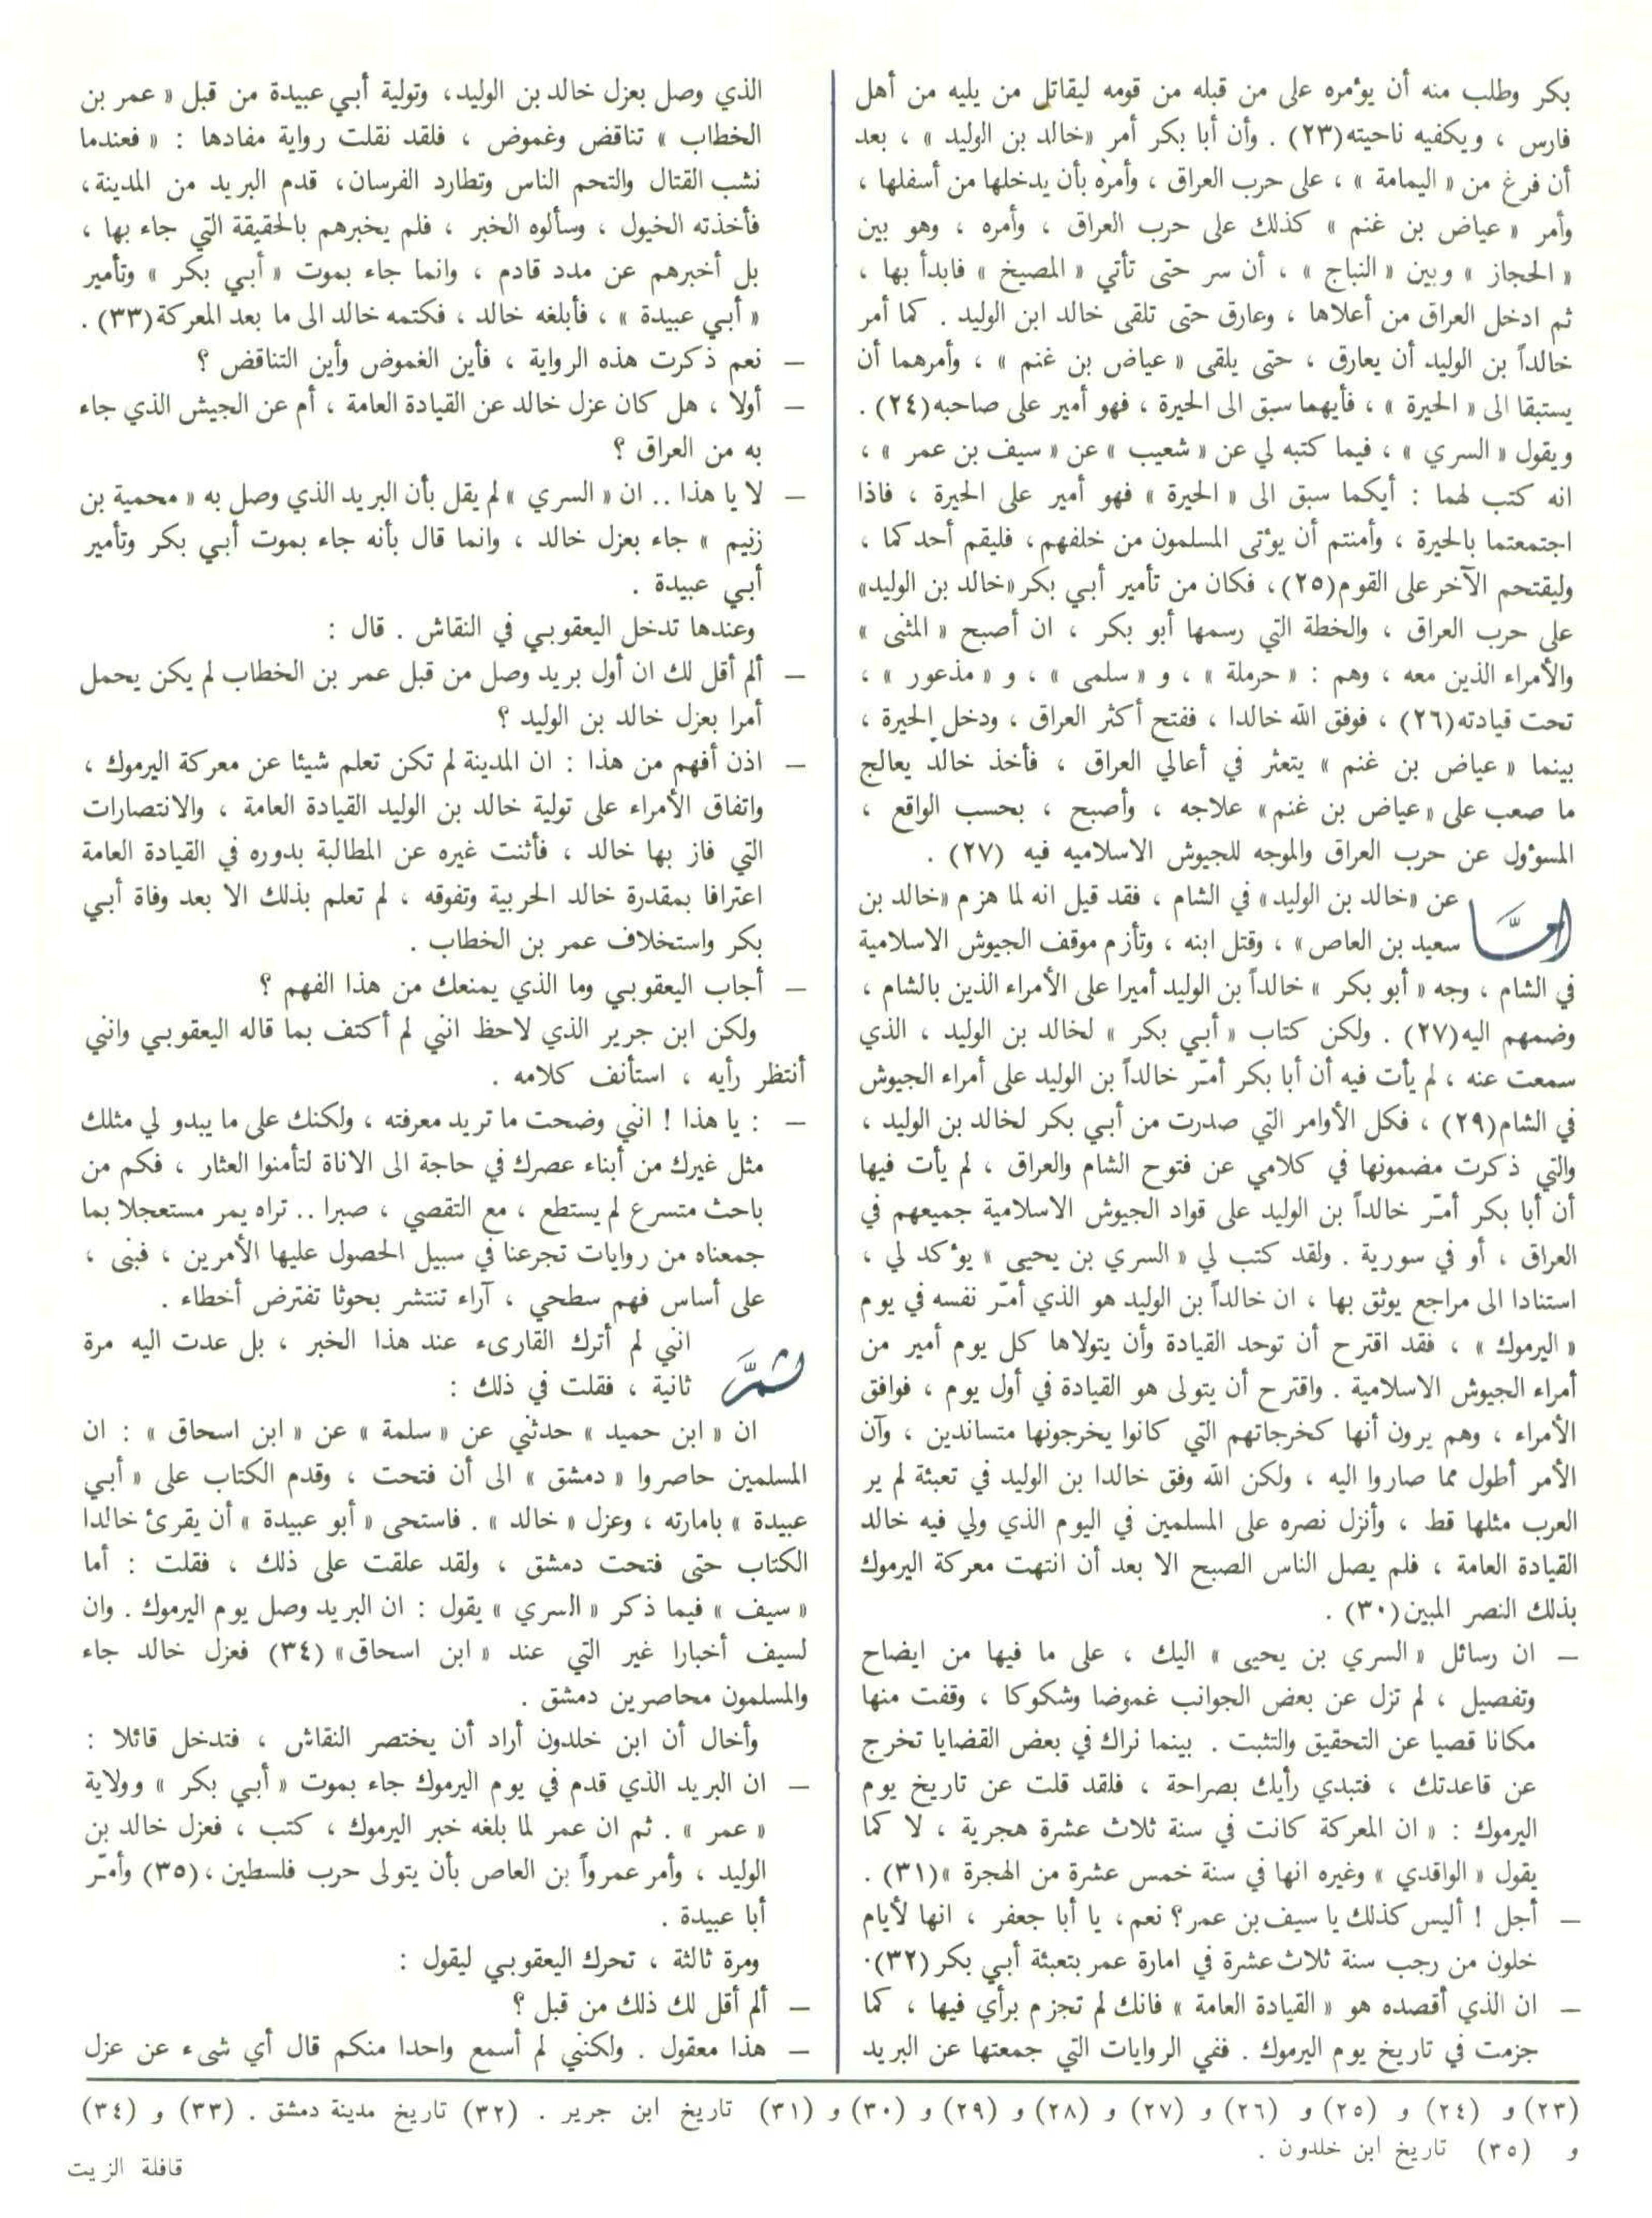 بكر وطلب منه أن يؤمره على من قبله من قومه ليقاتل من يليه من أهل
فارس ، ويكفيه ناحيته(٢٣) . وأن أبا بكر أمر «خالد بن الوليد » ، بعد
أن فرغ من « اليمامة » ، على حرب العراق ، وأمره بأن يدخلها من أسفلها ،
وأمر « عياض بن غنم » كذلك على حرب العراق ، وأمره ، وهو بين
« الحجاز » وبين « النباج » ، أن سر حتى تأتي « المصيخ » فابدأ بها ،
ثم ادخل العراق من أعلاها ، وعارق حتى تلقى خالد ابن الوليد . كما أمر
خالداً بن الوليد أن يعارق ، حتى يلقى « عياض بن غنم » ، وأمرهما أن
يستبقا الى « الحيرة » ، فأيهما سبق الى الحيرة ، فهو أمير على صاحبه(٢٤) .
ويقول « السري » ، فيما كتبه لي عن « شعيب » عن « سيف بن عمر » ،
انه كتب لهما : أيكما سبق الى « الحيرة » فهو أمير على الحيرة ، فاذا
اجتمعتما بالحيرة ، وأمنتم أن يؤتى المسلمون من خلفهم، فليقم أحدكما ،
وليقتحم الآخر على القوم(٢٥)، فكان من تأمير أبي بكر «خالد بن الوليد»
على حرب العراق ، والخطة التي رسمها أبو بكر ، ان أصبح « المثنى »
والأمراء الذين معه ، وهم : « حرملة » ، و « سلمى » ، و « مذعور » ،
تحت قيادته(٢٦) ، فوفق الله خالدا ، ففتح أكثر العراق ، ودخل الحيرة ،
بينما « عياض بن غنم » يتعثر في أعالي العراق ، فأخذ خالد يعالج
ما صعب على «عياض بن غنم» علاجه ، وأصبح ، بحسب الواقع ،
المسؤول عن حرب العراق والموجه للجيوش الاسلاميه فيه (٢٧) .
أمّا عن «خالد بن الوليد» في الشام ، فقد قيل انه لما هزم «خالد بن
سعيد بن العاص» ، وقتل ابنه ، وتأزم موقف الجيوش الاسلامية
في الشام ، وجه « أبو بكر » خالداً بن الوليد أميرا على الأمراء الذين بالشام ،
وضمهم اليه(٢٧) . ولكن كتاب « أبي بكر » لخالد بن الوليد ، الذي
سمعت عنه ، لم يأت فيه أن أبا بكر أمّر خالداً بن الوليد على أمراء الجيوش
في الشام(٢٩) ، فكل الأوامر التي صدرت من أبي بكر لخالد بن الوليد ،
والتي ذكرت مضمونها في كلامي عن فتوح الشام والعراق ، لم يأت فيها
أن أبا بكر أمّر خالداً بن الوليد على قواد الجيوش الاسلامية جميعهم في
العراق ، أو في سورية . ولقد كتب لي « السري بن يحيى » يؤكد لي ،
استنادا الى مراجع يوثق بها ، ان خالداً بن الوليد هو الذي أمّر نفسه في يوم
« اليرموك » ، فقد اقترح أن توحد القيادة وأن يتولاها كل يوم أمير من
أمراء الجيوش الاسلامية . واقترح أن يتولى هو القيادة في أول يوم ، فوافق
الأمراء ، وهم يرون أنها كخرجاتهم التي كانوا يخرجونها متساندين ، وآن
الأمر أطول مما صاروا اليه ، ولكن الله وفق خالدا بن الوليد في تعبئة لم ير
العرب مثلها قط ، وأنزل نصره على المسلمين في اليوم الذي ولي فيه خالد
القيادة العامة ، فلم يصل الناس الصبح الا بعد أن انتهت معركة اليرموك
بذلك النصر المبين(٣٠) .
— ان رسائل « السري بن يحيى » اليك ، على ما فيها من ايضاح
وتفصيل ، لم تزل عن بعض الجوانب غموضا وشكوكا ، وقفت منها
مكانا قصيا عن التحقيق والتثبت . بينما نراك في بعض القضايا تخرج
عن قاعدتك ، فتبدي رأيك بصراحة ، فلقد قلت عن تاريخ يوم
اليرموك : « ان المعركة كانت في سنة ثلاث عشرة هجرية ، لا كما
يقول « الواقدي » وغيره انها في سنة خمس عشرة من الهجرة »(٣١) .
— أجل ! أليس كذلك يا سيف بن عمر؟ نعم، يا أبا جعفر ، انها لأيام
خلون من رجب سنة ثلاث عشرة في امارة عمر بتعبئة أبي بكر (٣٢)٠
— ان الذي أقصده هو « القيادة العامة » فانك لم تجزم برأي فيها ، كما
جزمت في تاريخ يوم اليرموك . ففي الروايات التي جمعتها عن البريد
الذي وصل بعزل خالد بن الوليد، وتولية أبي عبيدة من قبل « عمر بن
الخطاب » تناقض وغموض ، فلقد نقلت رواية مفادها : « فعندما
نشب القتال والتحم الناس وتطارد الفرسان، قدم البريد من المدينة،
فأخذته الخيول ، وسألوه الخبر ، فلم يخبرهم بالحقيقة التي جاء بها ،
بل أخبرهم عن مدد قادم ، وانما جاء بموت « أبي بكر » وتأمير
« أبي عبيدة » ، فأبلغه خالد ، فكتمه خالد الى ما بعد المعركة(٣٣) .
— نعم ذكرت هذه الرواية ، فأين الغموض وأين التناقض ؟
— أولا ، هل كان عزل خالد عن القيادة العامة ، أم عن الجيش الذي جاء
به من العراق ؟
— لا يا هذا .. ان « السري » لم يقل بأن البريد الذي وصل به « محمية بن
زنيم » جاء بعزل خالد ، وانما قال بأنه جاء بموت أبي بكر وتأمير
أبي عبيدة .
وعندها تدخل اليعقوبي في النقاش . قال :
— ألم أقل لك ان أول بريد وصل من قبل عمر بن الخطاب لم يكن يحمل
أمرا بعزل خالد بن الوليد ؟
— اذن أفهم من هذا : ان المدينة لم تكن تعلم شيئا عن معركة اليرموك ،
واتفاق الأمراء على تولية خالد بن الوليد القيادة العامة ، والانتصارات
التي فاز بها خالد ، فأثنت غيره عن المطالبة بدوره في القيادة العامة
اعترافا بمقدرة خالد الحربية وتفوقه ، لم تعلم بذلك الا بعد وفاة أبي
بكر واستخلاف عمر بن الخطاب .
— أجاب اليعقوبي وما الذي يمنعك من هذا الفهم ؟
ولكن ابن جرير الذي لاحظ انني لم أكتف بما قاله اليعقوبي وانني
أنتظر رأيه ، استأنف كلامه .
— : يا هذا ! انني وضحت ما تريد معرفته ، ولكنك على ما يبدو لي مثلك
مثل غيرك من أبناء عصرك في حاجة الى الاناة لتأمنوا العثار ، فكم من
باحث متسرع لم يستطع ، مع التقصي ، صبرا .. تراه يمر مستعجلا بما
جمعناه من روايات تجرعنا في سبيل الحصول عليها الأمرين ، فبنى ،
على أساس فهم سطحي ، آراء تنتشر بحوثا تفترض أخطاء .
ثمّ انني لم أترك القارىء عند هذا الخبر ، بل عدت اليه مرة
ثانية ، فقلت في ذلك :
ان « ابن حميد » حدثني عن « سلمة » عن « ابن اسحاق » : ان
المسلمين حاصروا « دمشق » الى أن فتحت ، وقدم الكتاب على « أبي
عبيدة » بامارته ، وعزل « خالد » . فاستحى « أبو عبيدة » أن يقرئ خالدا
الكتاب حتى فتحت دمشق ، ولقد علقت على ذلك ، فقلت : أما
« سيف » فيما ذكر « السري » يقول : ان البريد وصل يوم اليرموك . وان
لسيف أخبارا غير التي عند « ابن اسحاق» (٣٤) فعزل خالد جاء
والمسلمون محاصرين دمشق .
وأخال أن ابن خلدون أراد أن يختصر النقاش ، فتدخل قائلا :
— ان البريد الذي قدم في يوم اليرموك جاء بموت « أبي بكر » وولاية
« عمر » . ثم ان عمر لما بلغه خبر اليرموك ، كتب ، فعزل خالد بن
الوليد ، وأمر عمرواً بن العاص بأن يتولى حرب فلسطين ،(٣٥) وأمّر
أبا عبيدة .
ومرة ثالثة ، تحرك اليعقوبي ليقول :
— ألم أقل لك ذلك من قبل ؟
— هذا معقول . ولكنني لم أسمع واحدا منكم قال أي شىء عن عزل
(٢٣) و (٢٤) و (٢٥) و (٢٦) و (٢٧) و (٢٨) و (٢٩) و (٣٠) و (٣١) تاريخ ابن جرير . (٣٢) تاريخ مدينة دمشق . (٣٣) و (٣٤)
و (٣٥) تاريخ ابن خلدون .
قافلة الزيت